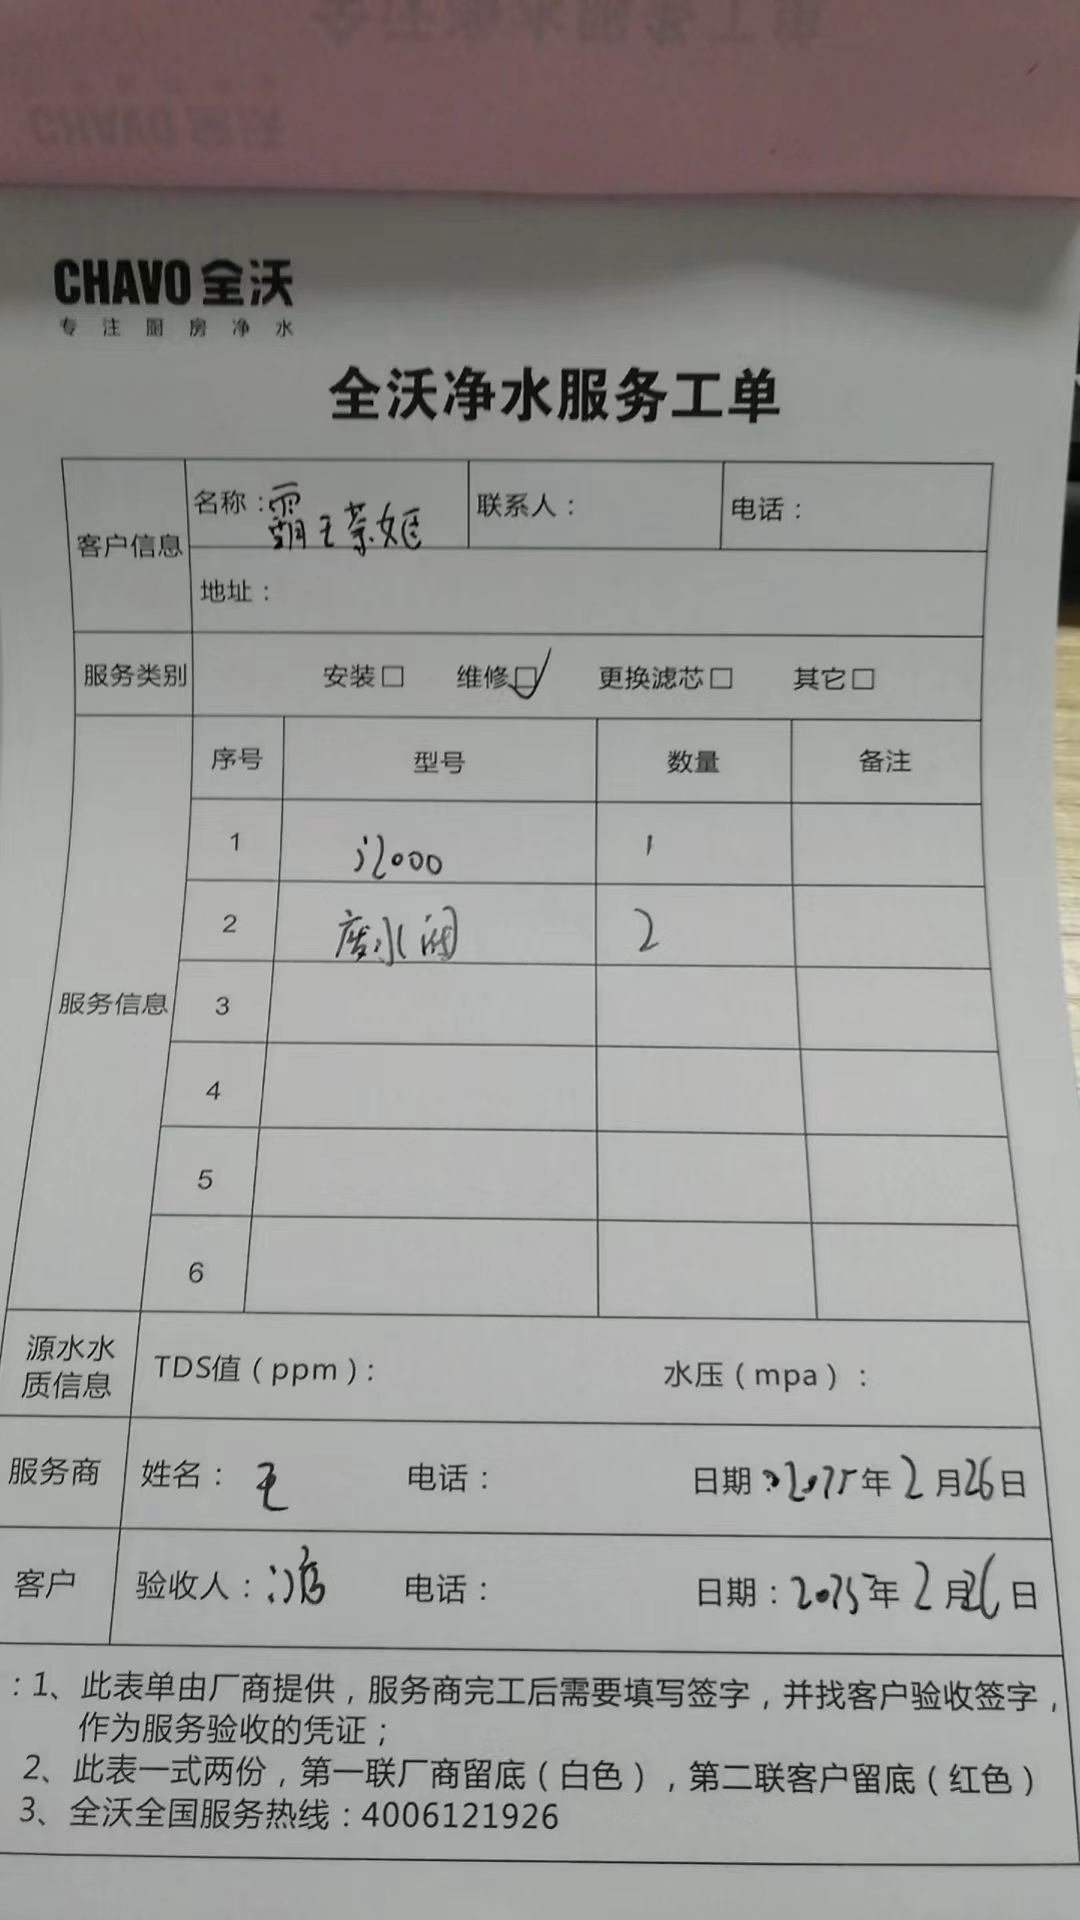 CHAVO 全沃
专注厨房净水
全沃净水服务工单
客户信息
名称：霸王茶姬 联系人： 电话：
地址：
服务类别 安装□ 维修□✓ 更换滤芯□ 其它□
服务信息
序号 型号 数量 备注
1 1
2 废水阀 2
3
4
5
6
源水水
质信息
TDS值（ppm）： 水压（mpa）：
服务商 姓名：王 电话： 日期：2025年2月26日
客户 验收人： 电话： 日期：2025年2月26日
：1、此表单由厂商提供，服务商完工后需要填写签字，并找客户验收签字，
作为服务验收的凭证；
2、此表一式两份，第一联厂商留底（白色），第二联客户留底（红色）
3、全沃全国服务热线：4006121926